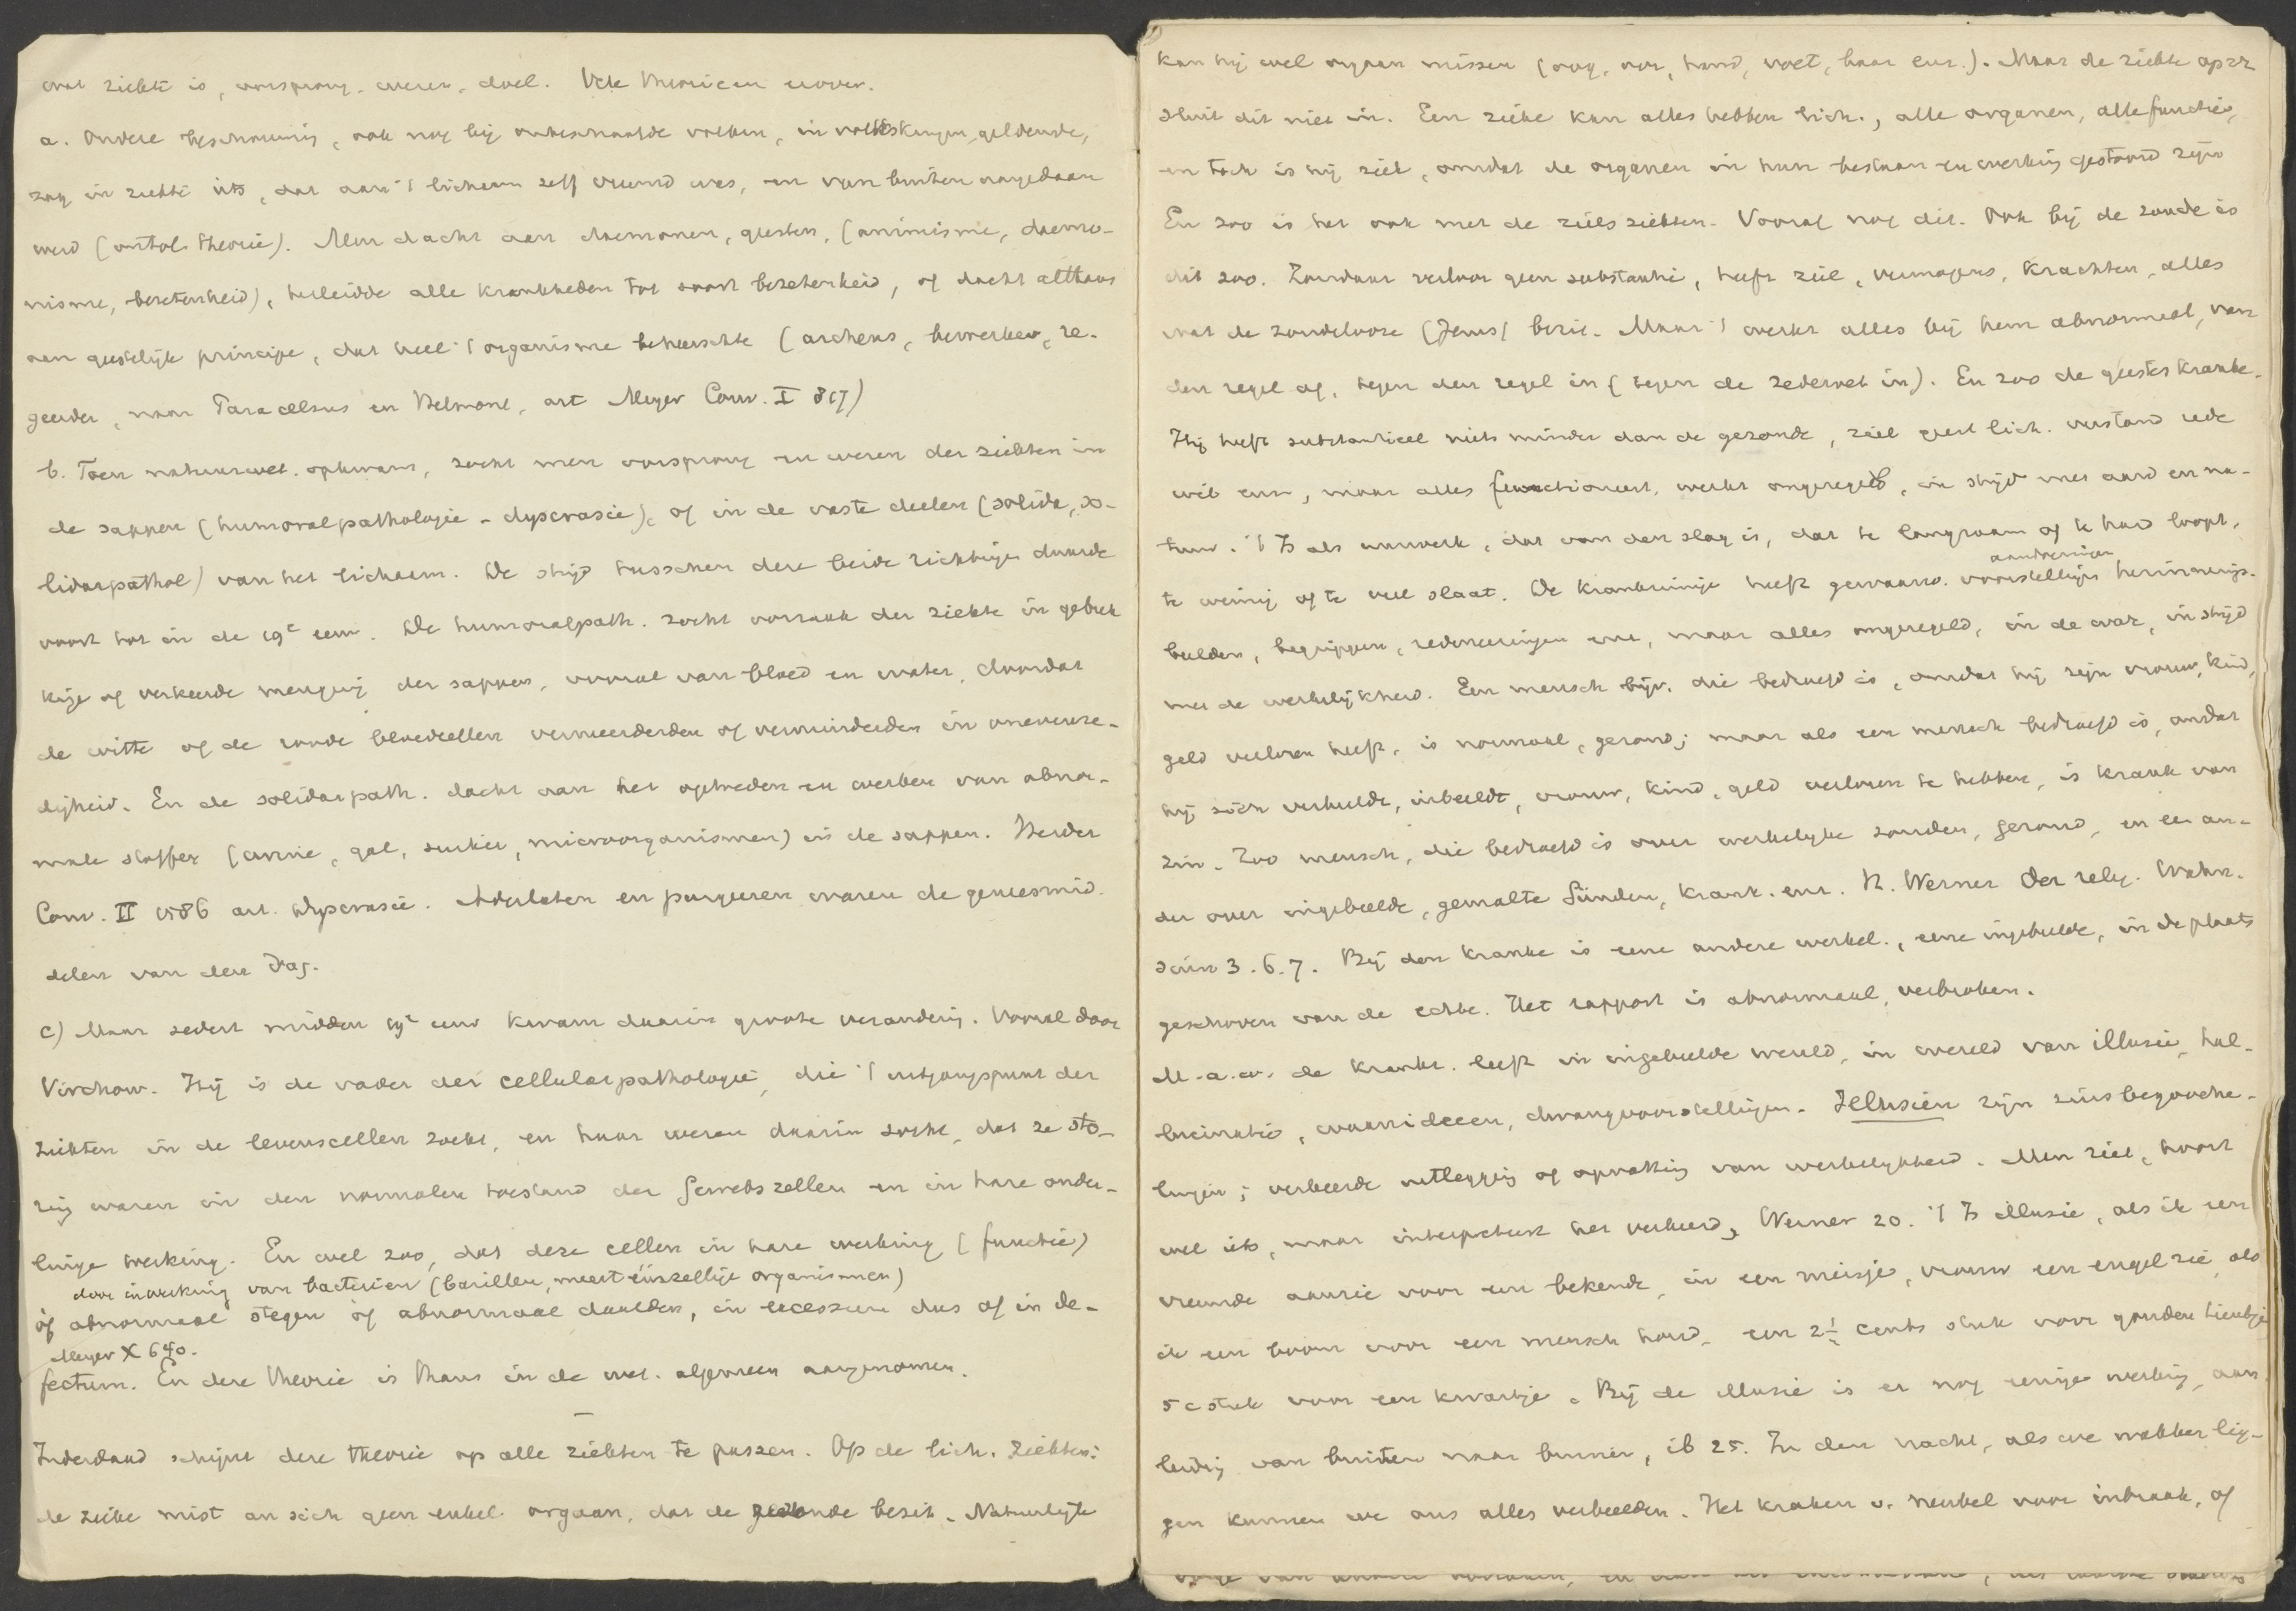 wat ziekte is, oorsprong, wezen, doel. Vele theorieen erover.
a. Oudere beschouwing, ook nog bij onbeschaafde volken, in volkskringen geldende,
zag in ziekte iets, dat aan 't lichaam zelf vreemd was, en van buiten aangedaan
werd (ontol. theorie). Men dacht aan daemonen, geesten, (animisme, daemo-
nisme, bezetenheid), herleidde alle krankheden tot soort bezetenheid, of dacht althans
aan geestelijk principe, dat heel 't organisme beheerschte (archeus, bewerker, re-
geerder, naar Paracelsus en Helmont, art Meyer Conv. I 817)
b. Toen natuurwet. opkwam, zocht men oorsprong en wezen der ziekten in
de sappen (humoralpathologie - dyscrasie), of in de vaste deelen (solida, so-
lidarpathol) van het lichaam. De strijd tusschen deze beide richtingen duurde
voort tot in de 19e eeuw. De humoralpath. zocht oorzaak der ziekte in gebrek
kige of verkeerde menging der sappen, vooral van bloed en water, doordat
de witte of de roode bloedcellen vermeerderden of verminderden in onevenre-
digheid. En de solidarpath. dacht aan het optreden en werken van abnor-
male stoffen (urine, gal, suiker, microorganismen) in de sappen. Herder
Conv. II 1586 art. Dyscrasie. Aderlaten en purgeeren waren de geneesmid.
delen van den dag.
c) Maar sedert midden 19e eeuw kwam daarin groote verandering. Vooral door
Virchow. Hij is de vader der cellularpathologie, die 't uitgangspunt der
ziekten in de levenscellen zocht, en haar wezen daarin zocht, dat ze sto-
ring waren in den normalen toestand der Gewebszellen en in hare onder-
linge werking. En wel zoo, dat deze cellen in hare werking (functie)
door inwerking van bacterien (bacillen, meest éénzellige organismen)
òf abnormaal stegen òf abnormaal daalden, in excessum dus of in de-
Meyer X 640.
fectum. En deze theorie is thans in de wet. algemeen aangenomen.
Inderdaad schijnt deze theorie op alle ziekten te passen. Op de lich. ziekten:
de zieke mist an sich geen enkel orgaan, dat de gezonde bezit. Natuurlijk
kan hij wel orgaan missen (oog, oor, hand, voet, haar enz.). Maar de ziekte op zz
sluit dit niet in. Een zieke kan alles hebben lich., alle organen, alle functies,
en toch is hij ziek, omdat de organen in hun bestaan en werking gestoord zijn
En zoo is het ook met de zielsziekten. Vooraf nog dit. Ook bij de zonde is
dit zoo. Zondaar verloor geen substantie, heeft ziel, vermogens, krachten, alles
wat de zondelooze (Jezus) bezit. Maar 't werkt alles bij hem abnormaal, van
den regel af, tegen den regel in (tegen de zedewet in). En zoo de geesteskranke.
Hij heeft substantieel niets minder dan de gezonde, ziel geest lich. verstand rede
wil enz, maar alles functioneert, werkt ongeregeld, in strijd met aard en na-
tuur. 't Is als uurwerk, dat van den slag is, dat te langzaam of te hard loopt,
te weinig of te veel slaat. De krankzinnige heeft gewaarw. voorstellingen aandoeningen herinnerings-
beelden, begrippen, redeneeringen enz, maar alles ongeregeld, in de war, in strijd
met de werkelijkheid. Een mensch bijv. die bedroefd is, omdat hij zijn vrouw, kind,
geld verloren heeft, is normaal, gezond; maar als een mensch bedroefd is, omdat
hij zich verbeeldt, inbeeldt, vrouw, kind, geld verloren te hebben, is krank van
zin. Zoo mensch, die bedroefd is over werkelijke zonden, gezond, en een an-
der over ingebeelde, gemalte Sünden, krank. enz. H. Werner Der relig. Wahn-
sinn 3. 6. 7. Bij den kranke is eene andere werkel., eene ingebeelde, in de plaats
geschoven van de echte. Het rapport is abnormaal, verbroken.
M.a.w. de kranke. leeft in ingebeelde wereld, in wereld van illusie, hal-
lucinatie, waanideeen, dwangvoorstellingen. Illusiën zijn zinsbegooche-
lingen; verkeerde uitlegging of opvatting van werkelijkheid. Men ziet, hoort
wel iets, maar interpreteert het verkeerd, Werner 20. 't Is illusie, als ik een
vreemde aanzie voor een bekende, in een meisje, vrouw een engel zie, als
ik een boom voor een mensch houd. een 2½ cents stuk voor gouden tientje
5 c stuk voor een kwartje. Bij de illusie is er nog eenige werking, aan
leiding van buiten naar binnen, ib 25. In den nacht, als we wakker lig-
gen kunnen we ons alles verbeelden. Het kraken v. meubel voor inbraak, of